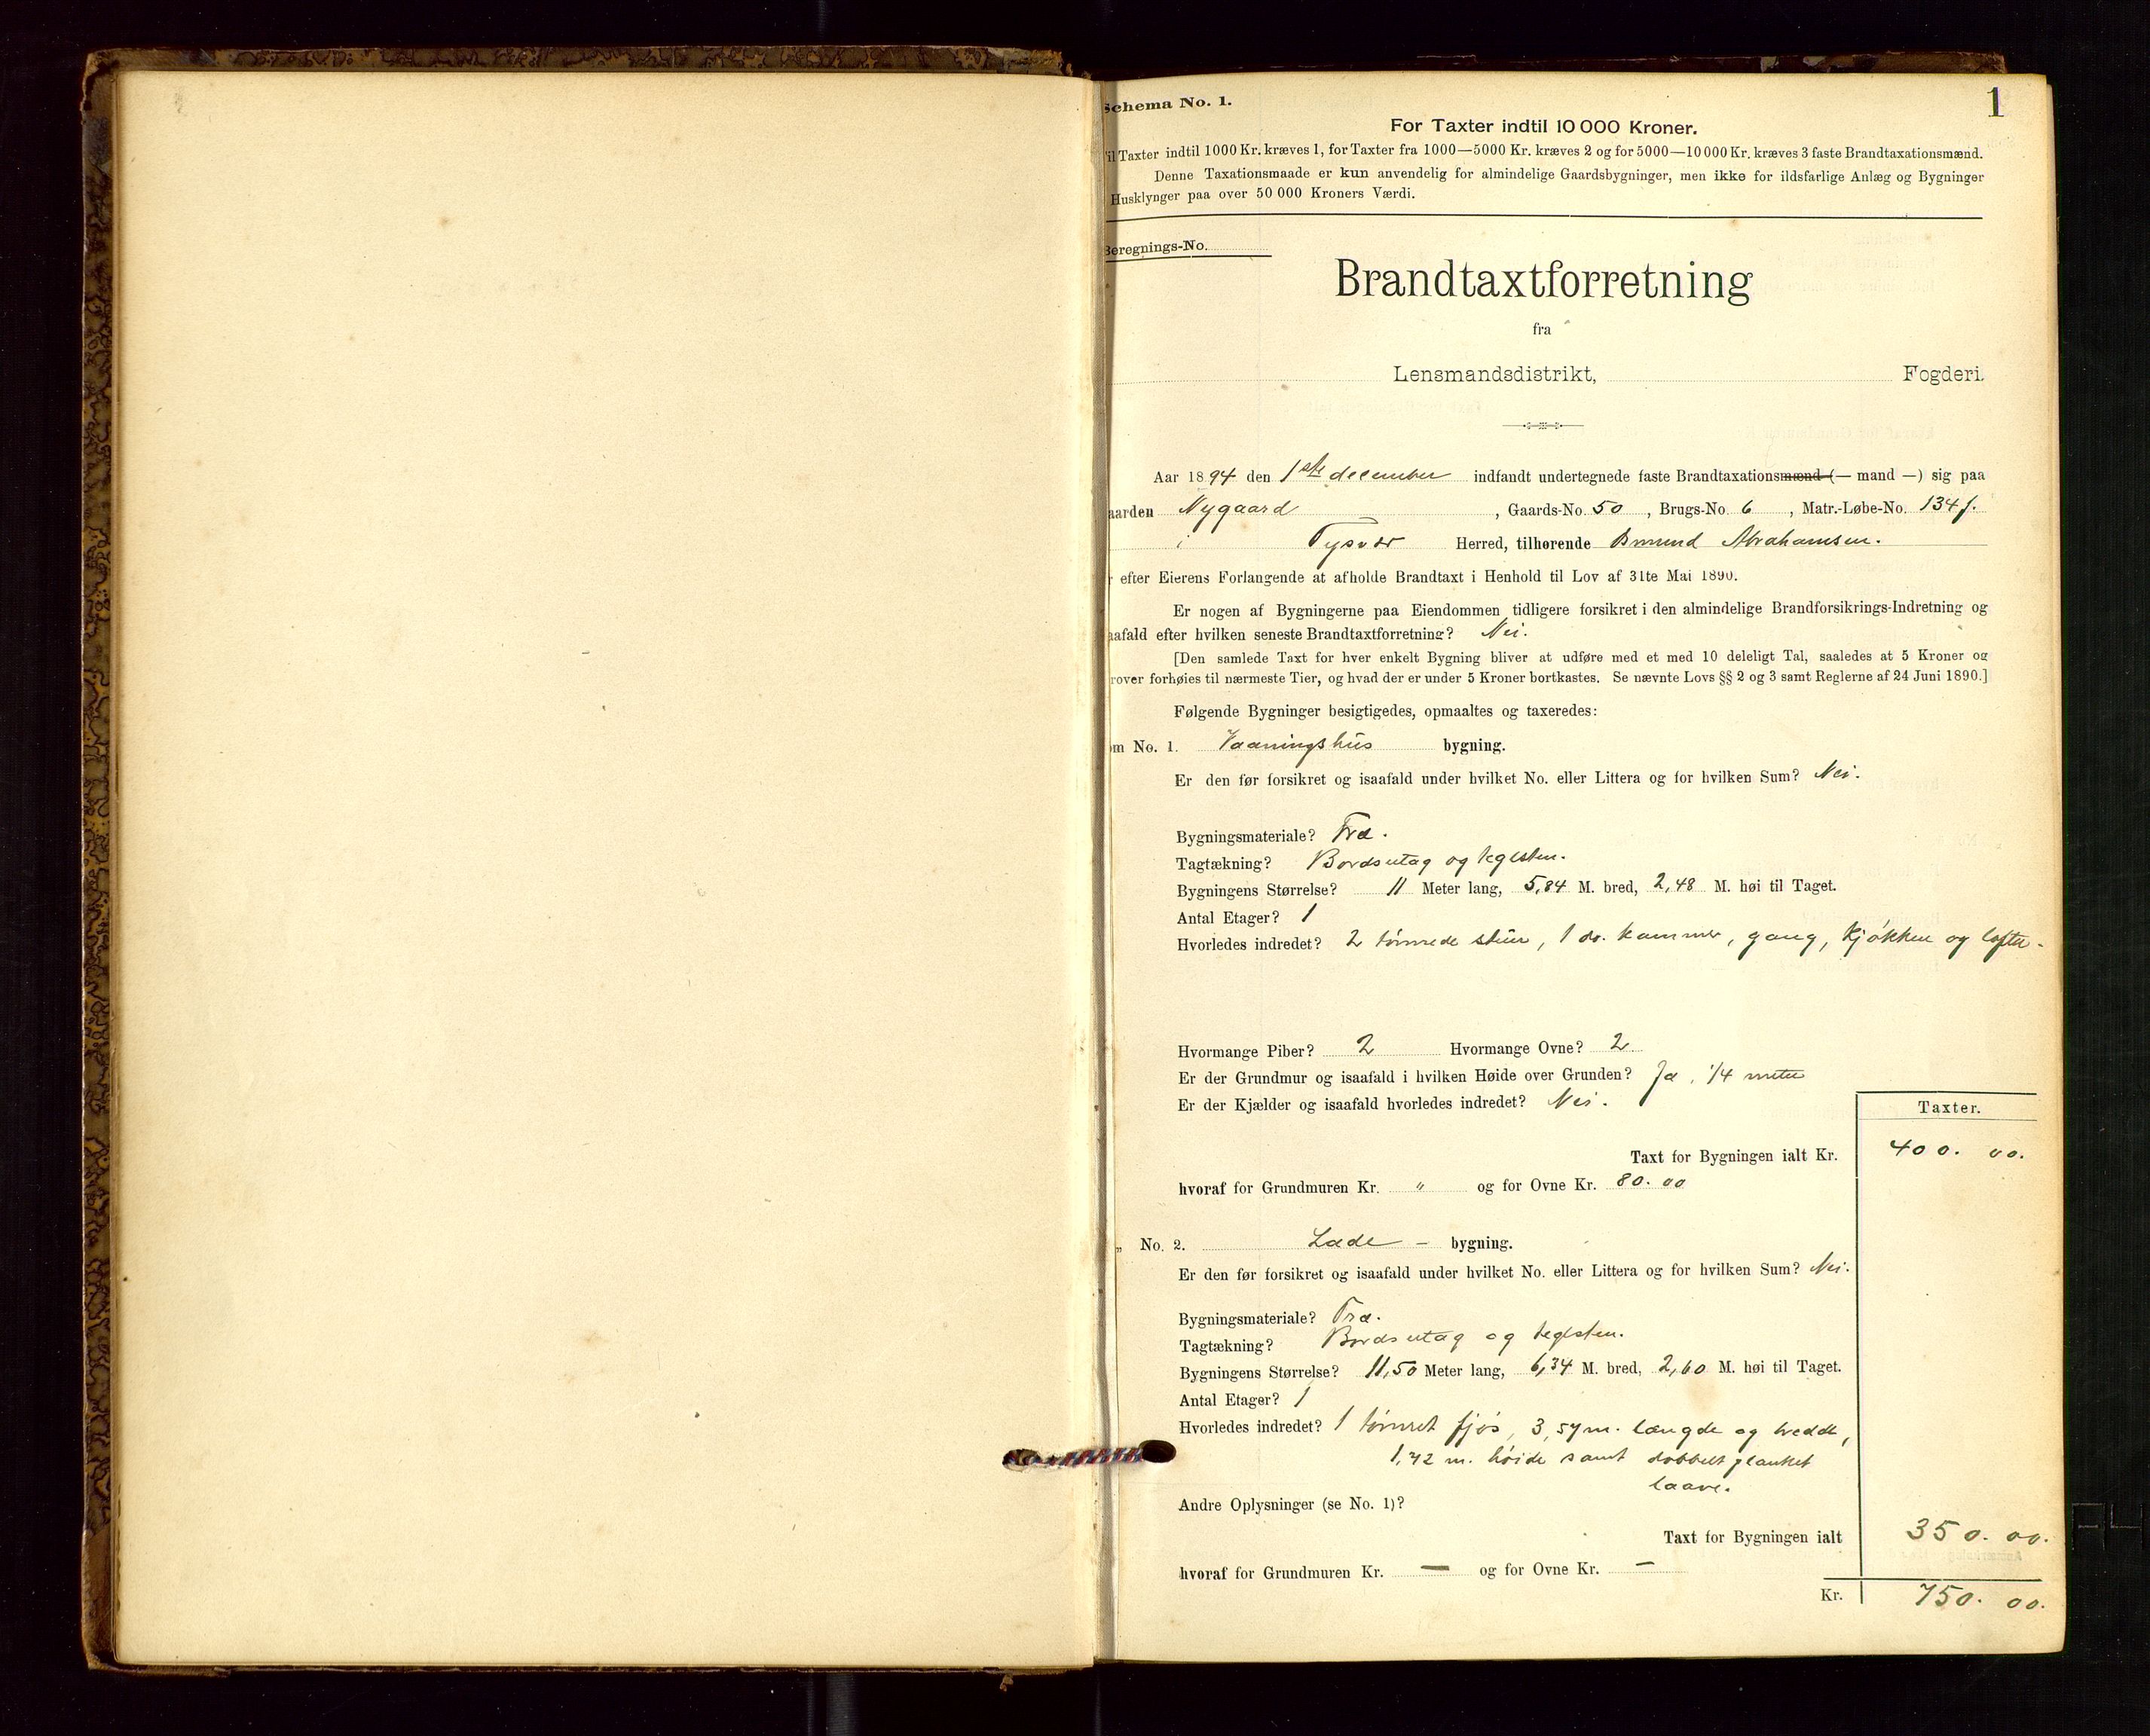 1
Schema No. 1.
For Taxter indtil 10 000 Kroner.
Til Taxter indtil 1000 Kr. kræves 1, for Taxter fra 1000—5000 Kr. kræves 2 og for 5000—10 000 Kr. kræves 3 faste Brandtaxationsmænd.
Denne Taxationsmaade er kun anvendelig for almindelige Gaardsbygninger, men ikke for ildsfarlige Anlæg og Bygninger
Husklynger paa over 50 000 Kroners Værdi.
Beregnings-No.
Brandtaxtforretning
fra
Lensmandsdistrikt, Fogderi.
Aar 1894 den 1ste december indfandt undertegnede faste Brandtaxationsmænd (— mand —) sig paa
aarden Nygaard , Gaards-No. 50 , Brugs-No. 6 , Matr.-Løbe-No. 134 f.
i Tysvær Herred, tilhørende Amund Abrahamsen.
efter Eierens Forlangende at afholde Brandtaxt i Henhold til Lov af 31te Mai 1890.
Er nogen af Bygningerne paa Eiendommen tidligere forsikret i den almindelige Brandforsikrings-Indretning og
aafald efter hvilken seneste Brandtaxtforretning? Nei.
[Den samlede Taxt for hver enkelt Bygning bliver at udføre med et med 10 deleligt Tal, saaledes at 5 Kroner og
rover forhøies til nærmeste Tier, og hvad der er under 5 Kroner bortkastes. Se nævnte Lovs §§ 2 og 3 samt Reglerne af 24 Juni 1890.]
Følgende Bygninger besigtigedes, opmaaltes og taxeredes:
om No. 1. Vaaningshus bygning.
Er den før forsikret og isaafald under hvilket No. eller Littera og for hvilken Sum? Nei.
Bygningsmateriale? Træ.
Tagtækning? Bordsutag og teglsten.
Bygningens Størrelse? 11 Meter lang, 5,84 M. bred, 2,48 M. høi til Taget.
Antal Etager? 1
Hvorledes indredet? 2 tømrede stuer, 1 do. kammer, gang, kjøkken og lofter.
Hvormange Piber? 2 Hvormange Ovne? 2
Er der Grundmur og isaafald i hvilken Høide over Grunden? Ja, 1/4 meter
Er der Kjælder og isaafald hvorledes indredet? Nei.
Taxter.
Taxt for Bygningen ialt Kr. 400. 00.
hvoraf for Grundmuren Kr. " og for Ovne Kr. 80. 00
„ No. 2. Lade – bygning.
Er den før forsikret og isaafald under hvilket No. eller Littera og for hvilken Sum? Nei.
Bygningsmateriale? Træ.
Tagtækning? Bordsutag og teglsten.
Bygningens Størrelse? 11,50 Meter lang, 6,34 M. bred, 2,60 M. høi til Taget.
Antal Etager? 1
Hvorledes indredet? 1 tømret fjøs, 3,57 m. længde og bredde,
1,72 m. høide samt dobbelt planket
laave.
Andre Oplysninger (se No. 1)?
Taxt for Bygningen ialt 350. 00.
hvoraf for Grundmuren Kr. — og for Ovne Kr. —
Kr. 750. 00.